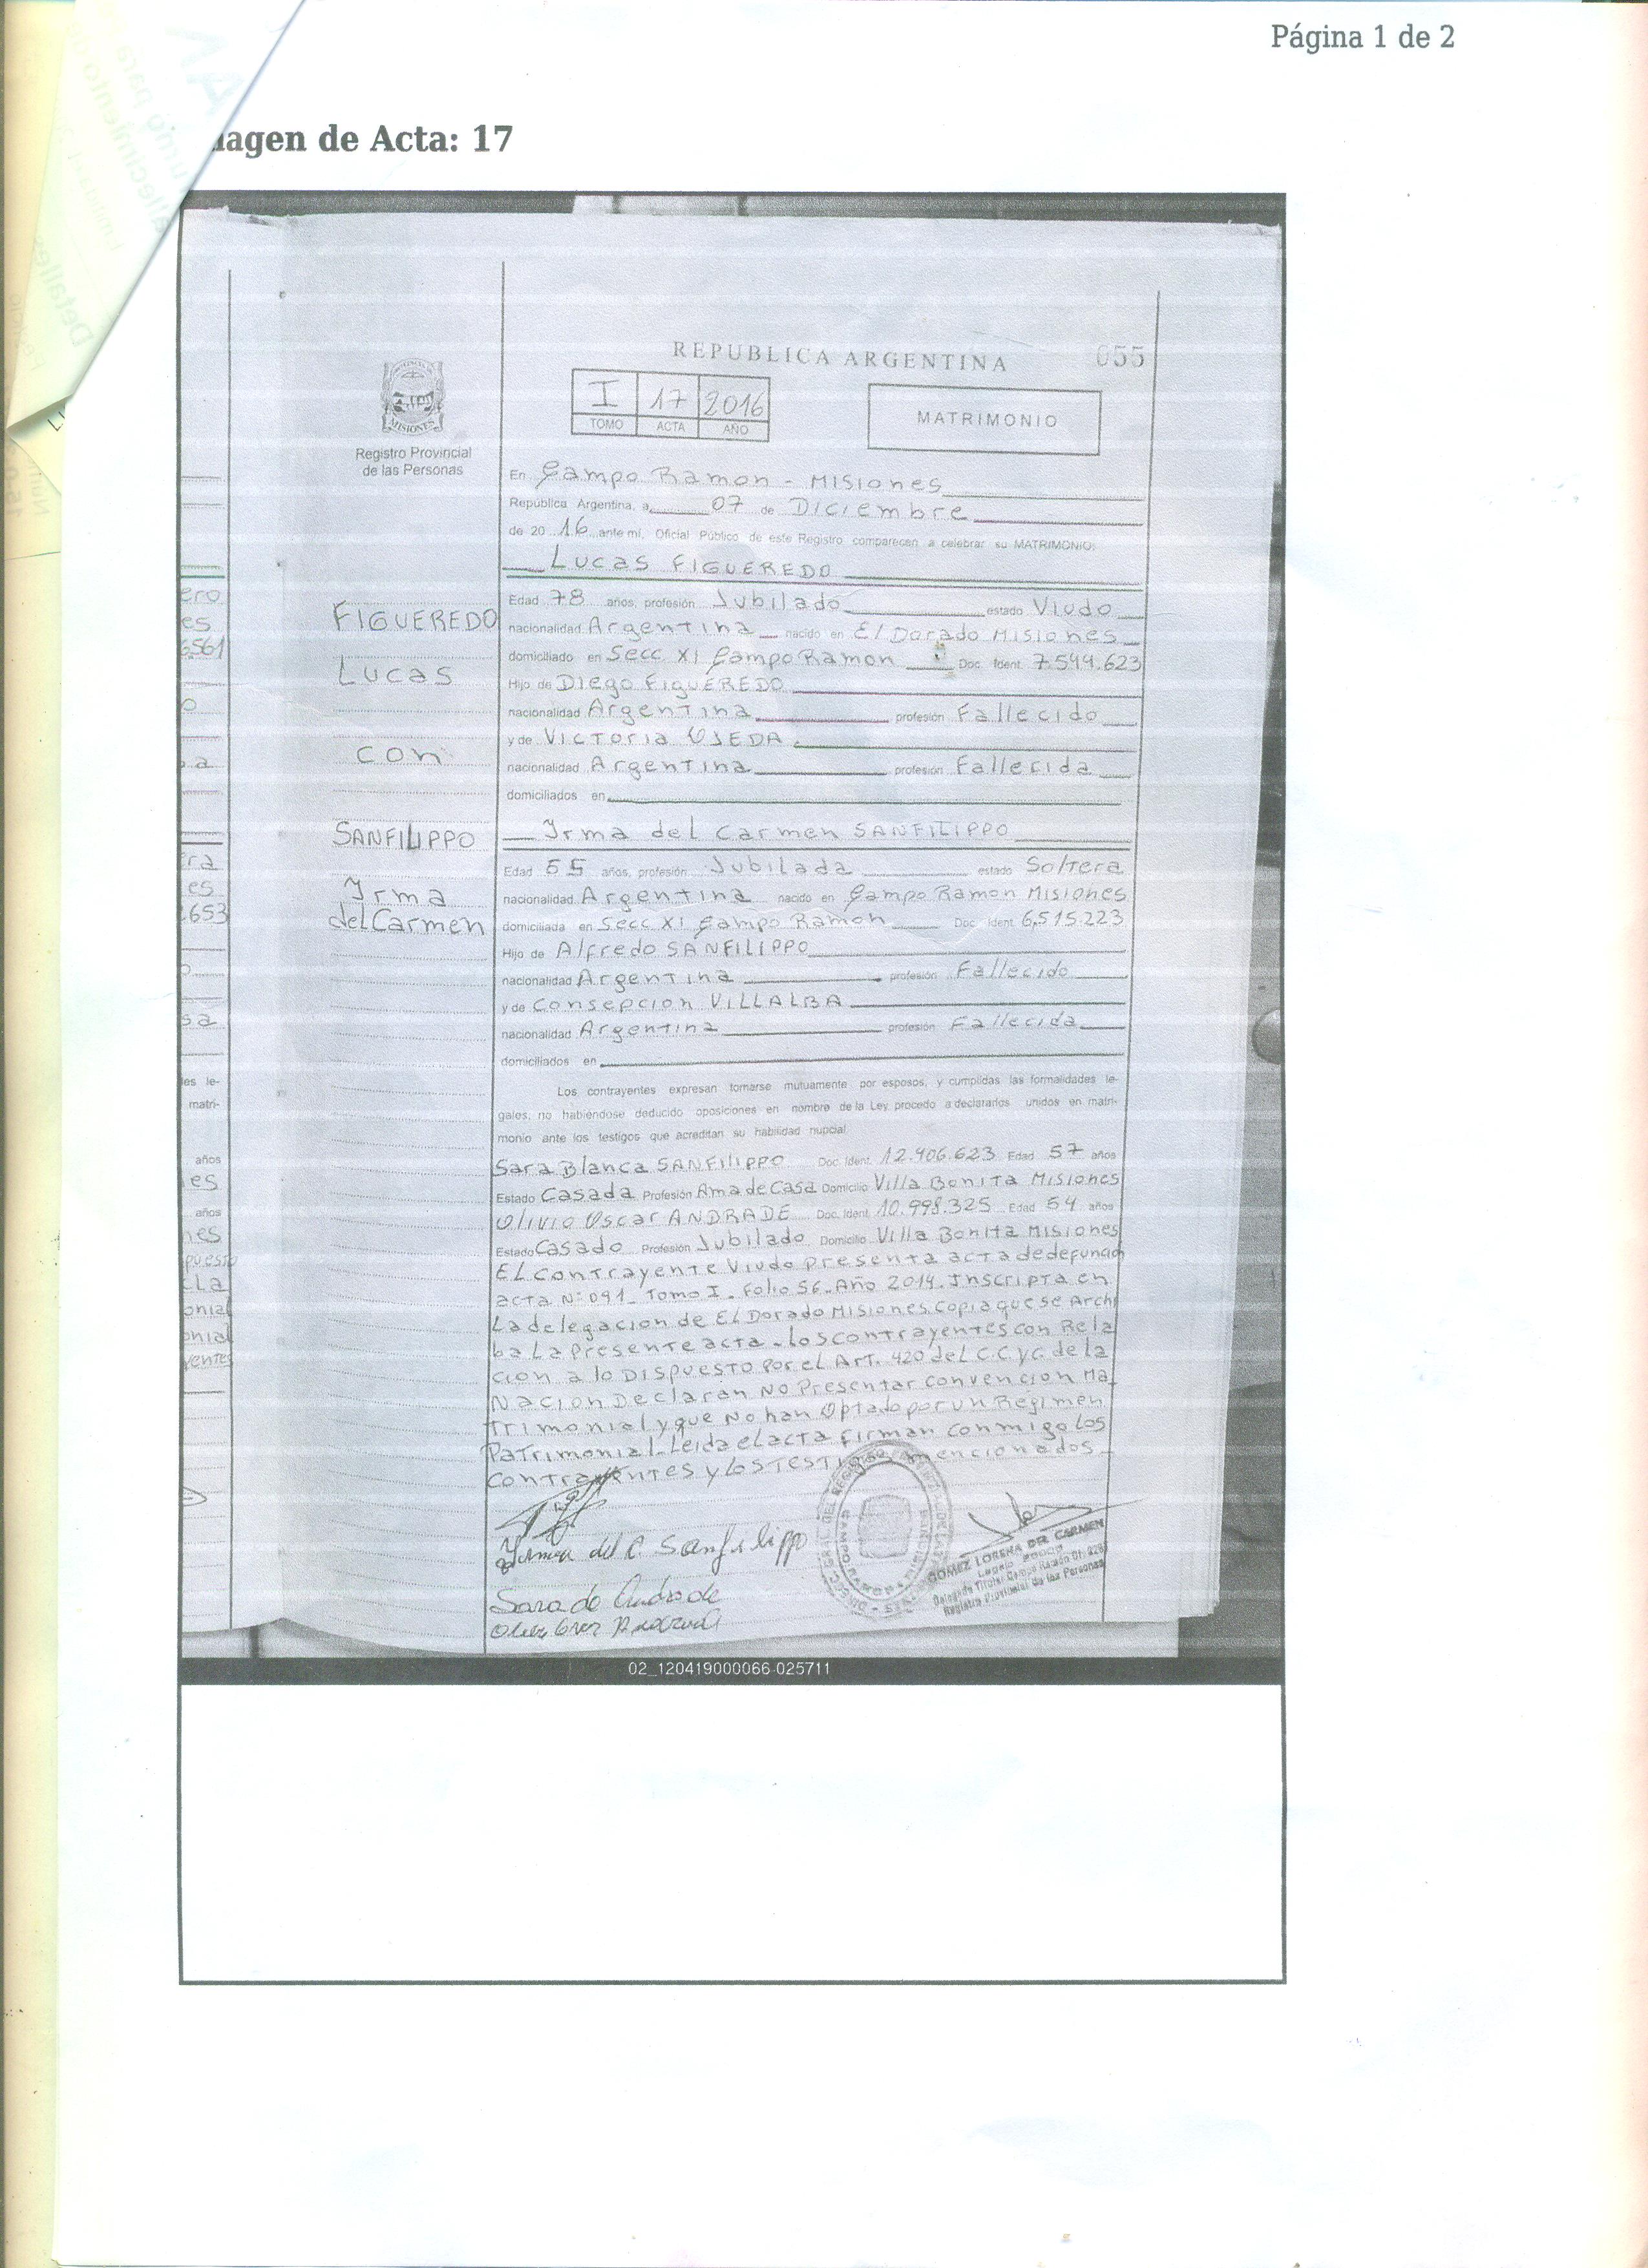 Página 1 de 2
agen de Acta: 17
REPUBLICA ARGENTINA 055
I 17 2016
TOMO ACTA AÑO
MATRIMONIO
MISIONES
Registro Provincial
de las Personas
En Campo Ramon - Misiones
República Argentina, a 07 de Diciembre
de 20 16 ante mí, Oficial Público de este Registro comparecen a celebrar su MATRIMONIO:
Lucas FIGUEREDO
FIGUEREDO
Lucas
con
SANFILIPPO
Irma
del Carmen
Edad 78 años, profesión Jubilado estado Viudo
nacionalidad Argentina nacido en El Dorado Misiones
domiciliado en Secc XI Campo Ramon Doc. Ident. 7.544.623
Hijo de Diego FIguEREDO
nacionalidad Argentina profesión Fallecido
y de Victoria OJEDA
nacionalidad Argentina profesión Fallecida
domiciliados en
Irma del Carmen SANFILIPPO
Edad 55 años, profesión Jubilada estado Soltera
nacionalidad Argentina nacido en Campo Ramon Misiones
domiciliada en Secc XI Campo Ramon Doc. Ident. 6.515.223
Hijo de Alfredo SANFILIPPO
nacionalidad Argentina profesión Fallecido
y de Consepcion VILLALBA
nacionalidad Argentina profesión Fallecida
domiciliados en
Los contrayentes expresan tomarse mutuamente por esposos, y cumplidas las formalidades le-
gales, no habiéndose deducido oposiciones en nombre de la Ley procedo a declararlos unidos en matri-
monio ante los testigos que acreditan su habilidad nupcial
Sara Blanca SANFILIPPO Doc. Ident. 12.406.623 Edad 57 años
Estado Casada Profesión Ama de Casa Domicilio Villa Bonita Misiones
Olivio Oscar ANDRADE Doc. Ident. 10.998.325 Edad 64 años
Estado Casado Profesión Jubilado Domicilio Villa Bonita Misiones
El Contrayente Viudo Presenta acta de defuncion
acta N° 091 Tomo I - Folio 56 - Año 2014. Inscripta en
La delegacion de El Dorado Misiones copia que se Archi
ba La presente acta - Los contrayentes con Rela
cion a lo Dispuesto por el Art. 420 del C.C. y C. de la
Nacion Declaran No Presentar convencion Ma
trimonial y que No han Optado por un Regimen
Patrimonial - Leida el acta firman conmigo Los
contrayentes y Los testigos mencionados
Irma del C. Sanfilippo
Sara de Andrade
GOMEZ LORENA DEL CARMEN
Delegada Titular Campo Ramón Of.
Registro Provincial de las Personas
ero
es
6561
o
a
era
es
653
sa
les le-
matri-
años
es
años
nes
puesto
cLa
onial
onial
yentes
02_120419000066-025711